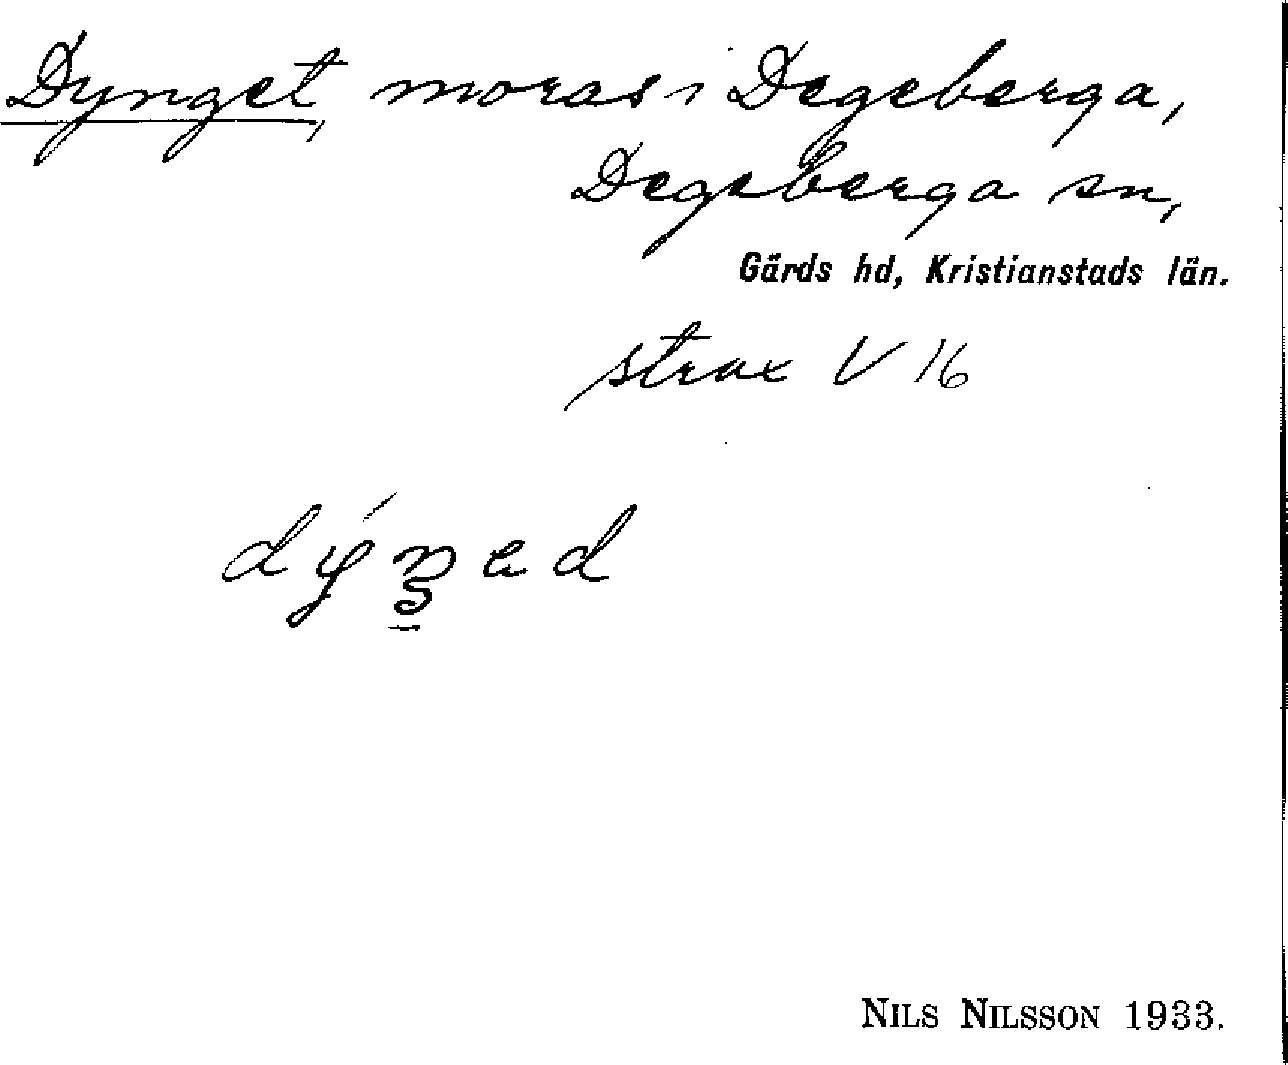 Dynget, moras i Degeberga,
Degeberga sn,
Gärds hd, Kristianstads län.
strax V 16
NILS NILSSON 1933.